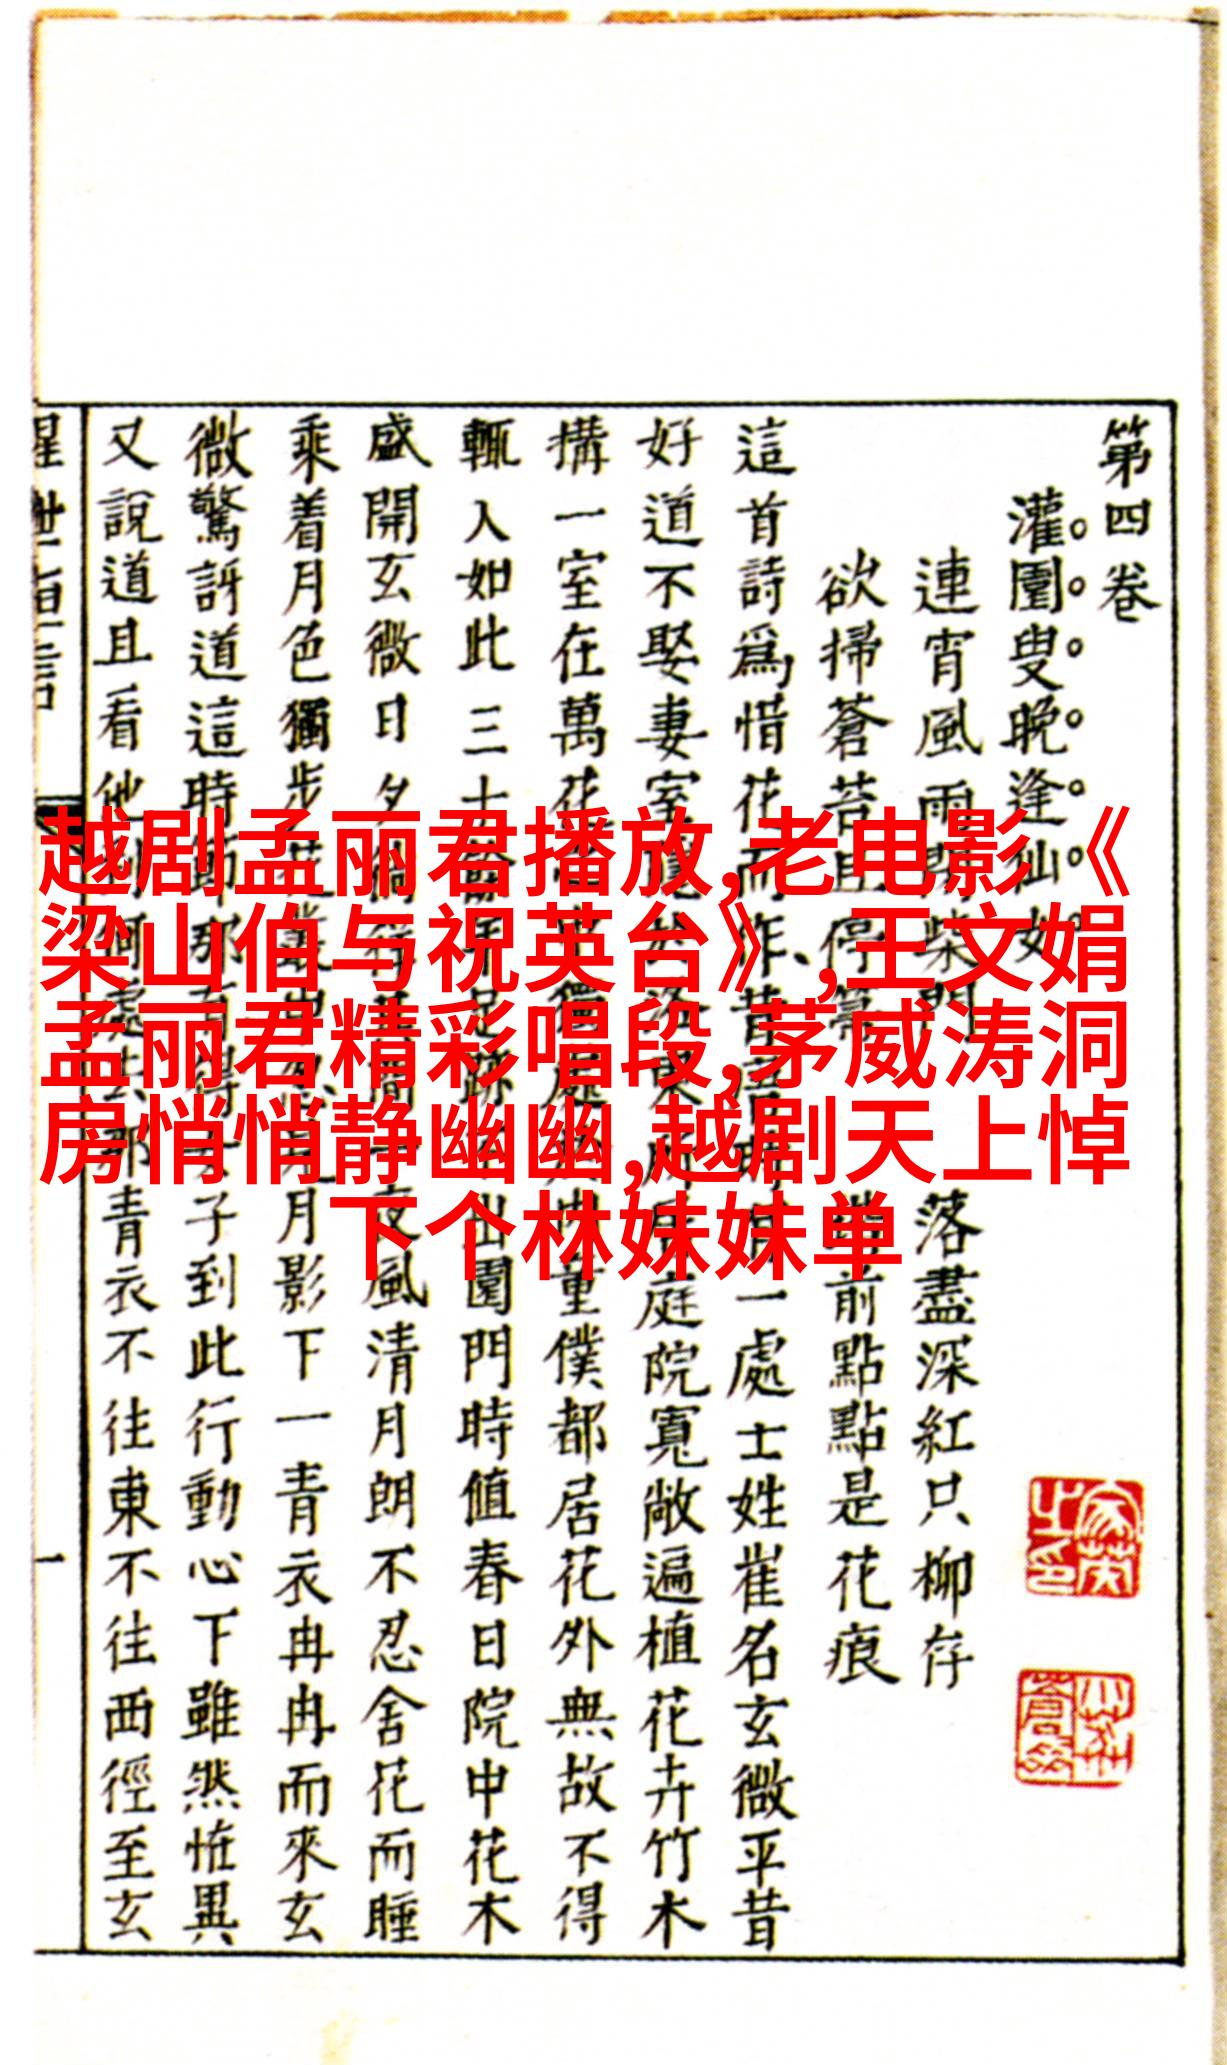 越剧孟丽君播放,老电影《
梁山伯与祝英台》,王文娟
孟丽君精彩唱段,茅威涛洞
房悄悄静幽幽,越剧天上悼
下个林妹妹单
第四卷
灌園叟晚逢仙女
連宵風雨閉柴門 落盡深紅只柳存
欲掃蒼苔且停 前點點是花痕
這首詩爲惜花而作、昔 時有一處士姓崔名玄微平昔
好道不娶妻室 庭院寬敞遍植花卉竹木
搆一室在萬花 獨處 童僕都居花外無故不得
輒入如此三十 足跡 出園門時值春日院中花木
盛開玄微日夕 夜風清月朗不忍舍花而睡
乘着月色獨步 月影下一青衣冉冉而來玄
微驚訝道這時節那 子到此行動心下雖然怪異
又說道且看他 何處去那青衣不往東不往西徑至玄
一